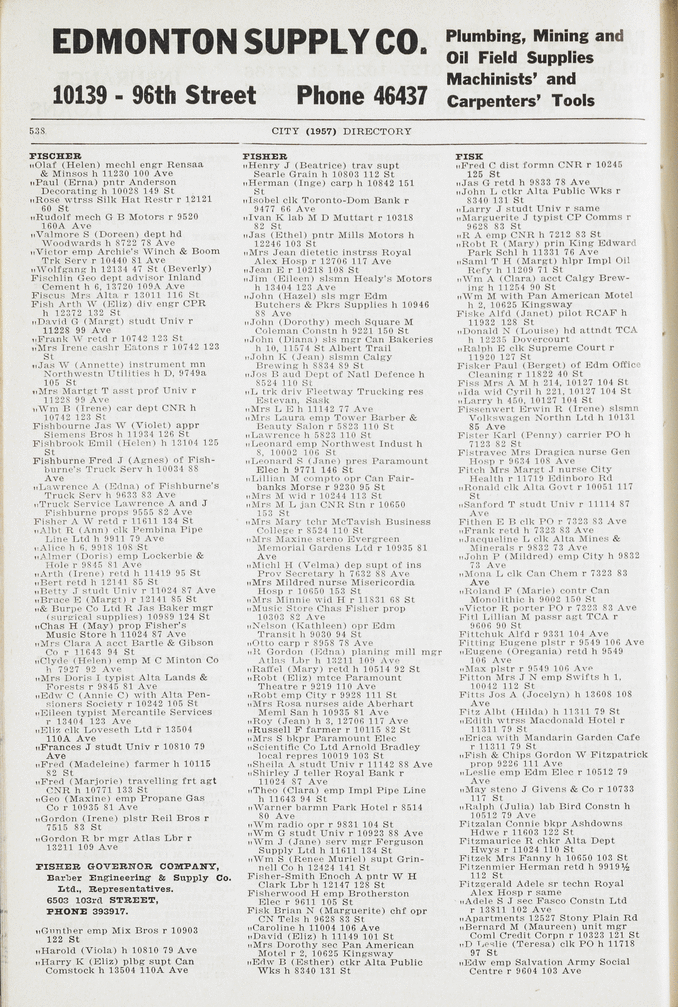 EDMONTON SUPPLY CO.
10139 - 96th Street Phone 46437
Plumbing, Mining and
Oil Field Supplies
Machinists' and
Carpenters' Tools
538
CITY (1957) DIRECTORY
FISCHER
„Olaf (Helen) mechl engr Rensaa
& Minsos h 11230 100 Ave
„Paul (Erna) pntr Anderson
Decorating h 10028 149 St
„Rose wtrss Silk Hat Restr r 12121
60 St
„Rudolf mech G B Motors r 9520
160A Ave
„Valmore S (Doreen) dept hd
Woodwards h 8722 78 Ave
„Victor emp Archie's Winch & Boom
Trk Serv r 10440 81 Ave
„Wolfgang h 12134 47 St (Beverly)
Fischlin Geo dept advisor Inland
Cement h 6, 13720 109A Ave
Fiscus Mrs Alta r 13011 116 St
Fish Arth W (Eliz) div engr CPR
h 12372 132 St
„David G (Margt) studt Univ r
11228 99 Ave
„Frank W retd r 10742 123 St
„Mrs Irene cashr Eatons r 10742 123
St
„Jas W (Annette) instrument mn
Northwestn Utilities h D, 9749a
105 St
„Mrs Margt T asst prof Univ r
11228 99 Ave
„Wm B (Irene) car dept CNR h
10742 123 St
Fishbourne Jas W (Violet) appr
Siemens Bros h 11934 126 St
Fishbrook Emil (Helen) h 13104 125
St
Fishburne Fred J (Agnes) of Fish-
burne's Truck Serv h 10034 88
Ave
„Lawrence A (Edna) of Fishburne's
Truck Serv h 9633 83 Ave
„Truck Service Lawrence A and J
Fishburne props 9555 82 Ave
Fisher A W retd r 11611 134 St
„Albt R (Ann) clk Pembina Pipe
Line Ltd h 9911 79 Ave
„Alice h 6, 9918 108 St
„Almer (Doris) emp Lockerbie &
Hole r 9845 81 Ave
„Arth (Irene) retd h 11419 95 St
„Bert retd h 12141 85 St
„Betty J studt Univ r 11024 87 Ave
„Bruce E (Margt) r 12141 85 St
„& Burpe Co Ltd R Jas Baker mgr
(surgical supplies) 10989 124 St
„Chas H (May) prop Fisher's
Music Store h 11024 87 Ave
„Mrs Clara A acct Bartle & Gibson
Co r 11643 94 St
„Clyde (Helen) emp M C Minton Co
h 7927 92 Ave
„Mrs Doris I typist Alta Lands &
Forests r 9845 81 Ave
„Edw C (Annie C) with Alta Pen-
sioners Society r 10242 105 St
„Eileen typist Mercantile Services
r 13404 123 Ave
„Eliz clk Loveseth Ltd r 13504
110A Ave
„Frances J studt Univ r 10810 79
Ave
„Fred (Madeleine) farmer h 10115
82 St
„Fred (Marjorie) travelling frt agt
CNR h 10771 133 St
„Geo (Maxine) emp Propane Gas
Co r 10935 81 Ave
„Gordon (Irene) plstr Reil Bros r
7515 83 St
„Gordon R br mgr Atlas Lbr r
13211 109 Ave
FISHER GOVERNOR COMPANY,
Barber Engineering & Supply Co.
Ltd., Representatives.
6503 103rd STREET,
PHONE 393917.
„Gunther emp Mix Bros r 10903
122 St
„Harold (Viola) h 10810 79 Ave
„Harry K (Eliz) plbg supt Can
Comstock h 13504 110A Ave
FISHER
„Henry J (Beatrice) trav supt
Searle Grain h 10803 112 St
„Herman (Inge) carp h 10842 151
St
„Isobel clk Toronto-Dom Bank r
9477 66 Ave
„Ivan K lab M D Muttart r 10318
82 St
„Jas (Ethel) pntr Mills Motors h
12246 103 St
„Mrs Jean dietetic instrss Royal
Alex Hosp r 12706 117 Ave
„Jean E r 10218 108 St
„Jim (Eileen) slsmn Healy's Motors
h 13404 123 Ave
„John (Hazel) sls mgr Edm
Butchers & Pkrs Supplies h 10946
88 Ave
„John (Dorothy) mech Square M
Coleman Constn h 9221 150 St
„John (Diana) sls mgr Can Bakeries
h 10, 11574 St Albert Trail
„John K (Jean) slsmn Calgy
Brewing h 8834 89 St
„Jos B aud Dept of Natl Defence h
8524 110 St
„L trk driv Fleetway Trucking res
Estevan, Sask
„Mrs L E h 11142 77 Ave
„Mrs Laura emp Tower Barber &
Beauty Salon r 5823 110 St
„Lawrence h 5823 110 St
„Leonard emp Northwest Indust h
8, 10002 106 St
„Leonard S (Jane) pres Paramount
Elec h 9771 146 St
„Lillian M compto opr Can Fair-
banks Morse r 9230 95 St
„Mrs M wid r 10244 113 St
„Mrs M L jan CNR Stn r 10650
153 St
„Mrs Mary tchr McTavish Business
College r 8524 110 St
„Mrs Maxine steno Evergreen
Memorial Gardens Ltd r 10935 81
Ave
„Michl H (Velma) dep supt of ins
Prov Secretary h 7632 88 Ave
„Mrs Mildred nurse Misericordia
Hosp r 10650 153 St
„Mrs Minnie wid H r 11831 68 St
„Music Store Chas Fisher prop
10303 82 Ave
„Nelson (Kathleen) opr Edm
Transit h 9030 94 St
„Otto carp r 8958 78 Ave
„R Gordon (Edna) planing mill mgr
Atlas Lbr h 13211 109 Ave
„Raffel (Mary) retd h 10514 92 St
„Robt (Eliz) mtce Paramount
Theatre r 9219 110 Ave
„Robt emp City r 9928 111 St
„Mrs Rosa nurses aide Aberhart
Meml San h 10935 81 Ave
„Roy (Jean) h 3, 12706 117 Ave
„Russell F farmer r 10115 82 St
„Mrs S bkpr Paramount Elec
„Scientific Co Ltd Arnold Bradley
local repres 10019 103 St
„Sheila A studt Univ r 11142 88 Ave
„Shirley J teller Royal Bank r
11024 87 Ave
„Theo (Clara) emp Impl Pipe Line
h 11643 94 St
„Warner barmn Park Hotel r 8514
80 Ave
„Wm radio opr r 9831 104 St
„Wm G studt Univ r 10923 88 Ave
„Wm J (Jane) serv mgr Ferguson
Supply Ltd h 11611 134 St
„Wm S (Renee Muriel) supt Grin-
nell Co h 12424 141 St
Fisher-Smith Enoch A pntr W H
Clark Lbr h 12147 128 St
Fisherwood H emp Brotherston
Elec r 9611 105 St
Fisk Brian N (Marguerite) chf opr
CN Tels h 9628 83 St
„Caroline h 11004 106 Ave
„David (Eliz) h 11149 101 St
„Mrs Dorothy sec Pan American
Motel r 2, 10625 Kingsway
„Edw B (Esther) ctkr Alta Public
Wks h 8340 131 St
FISK
„Fred C dist formn CNR r 10245
125 St
„Jas G retd h 9833 78 Ave
„John L ctkr Alta Public Wks r
8340 131 St
„Larry J studt Univ r same
„Marguerite J typist CP Comms r
9628 83 St
„R A emp CNR h 7212 83 St
„Robt R (Mary) prin King Edward
Park Schl h 11331 76 Ave
„Saml T H (Margt) hlpr Impl Oil
Refy h 11209 71 St
„Wm A (Clara) acct Calgy Brew-
ing h 11254 90 St
„Wm M with Pan American Motel
h 2, 10625 Kingsway
Fiske Alfd (Janet) pilot RCAF h
11932 128 St
„Donald N (Louise) hd attndt TCA
h 12235 Dovercourt
„Ralph E clk Supreme Court r
11920 127 St
Fisker Paul (Berget) of Edm Office
Cleaning r 11822 40 St
Fiss Mrs A M h 214, 10127 104 St
„Ida wid Cyril h 221, 10127 104 St
„Larry h 450, 10127 104 St
Fissenwert Erwin R (Irene) slsmn
Volkswagen Northn Ltd h 10131
85 Ave
Fister Karl (Penny) carrier PO h
7123 82 St
Fistravec Mrs Dragica nurse Gen
Hosp r 9634 108 Ave
Fitch Mrs Margt J nurse City
Health r 11719 Edinboro Rd
„Ronald clk Alta Govt r 10051 117
St
„Sanford T studt Univ r 11114 87
Ave
Fithen E B clk PO r 7323 83 Ave
„Frank retd h 7323 83 Ave
„Jacqueline L clk Alta Mines &
Minerals r 9832 73 Ave
„John P (Mildred) emp City h 9832
73 Ave
„Mona L clk Can Chem r 7323 83
Ave
„Roland F (Marie) contr Can
Monolithic h 9002 150 St
„Victor R porter PO r 7323 83 Ave
Fitl Lillian M passr agt TCA r
9606 90 St
Fittchuk Alfd r 9331 104 Ave
Fitting Eugene plstr r 9549 106 Ave
„Eugene (Oregania) retd h 9549
106 Ave
„Max plstr r 9549 106 Ave
Fitton Mrs J N emp Swifts h 1,
10042 112 St
Fitts Jos A (Jocelyn) h 13608 108
Ave
Fitz Albt (Hilda) h 11311 79 St
„Edith wtrss Macdonald Hotel r
11311 79 St
„Erica with Mandarin Garden Cafe
r 11311 79 St
„Fish & Chips Gordon W Fitzpatrick
prop 9226 111 Ave
„Leslie emp Edm Elec r 10512 79
Ave
„May steno J Givens & Co r 10733
117 St
„Ralph (Julia) lab Bird Constn h
10512 79 Ave
Fitzalan Connie bkpr Ashdowns
Hdwe r 11603 122 St
Fitzmaurice R chkr Alta Dept
Hwys r 11024 110 St
Fitzek Mrs Fanny h 10650 103 St
Fitzenmier Herman retd h 9919½
112 St
Fitzgerald Adele sr techn Royal
Alex Hosp r same
„Adele S J sec Fasco Constn Ltd
r 13811 102 Ave
„Apartments 12527 Stony Plain Rd
„Bernard M (Maureen) unit mgr
Coml Credit Corpn r 10323 121 St
„D Leslie (Teresa) clk PO h 11718
97 St
„Edw emp Salvation Army Social
Centre r 9604 103 Ave